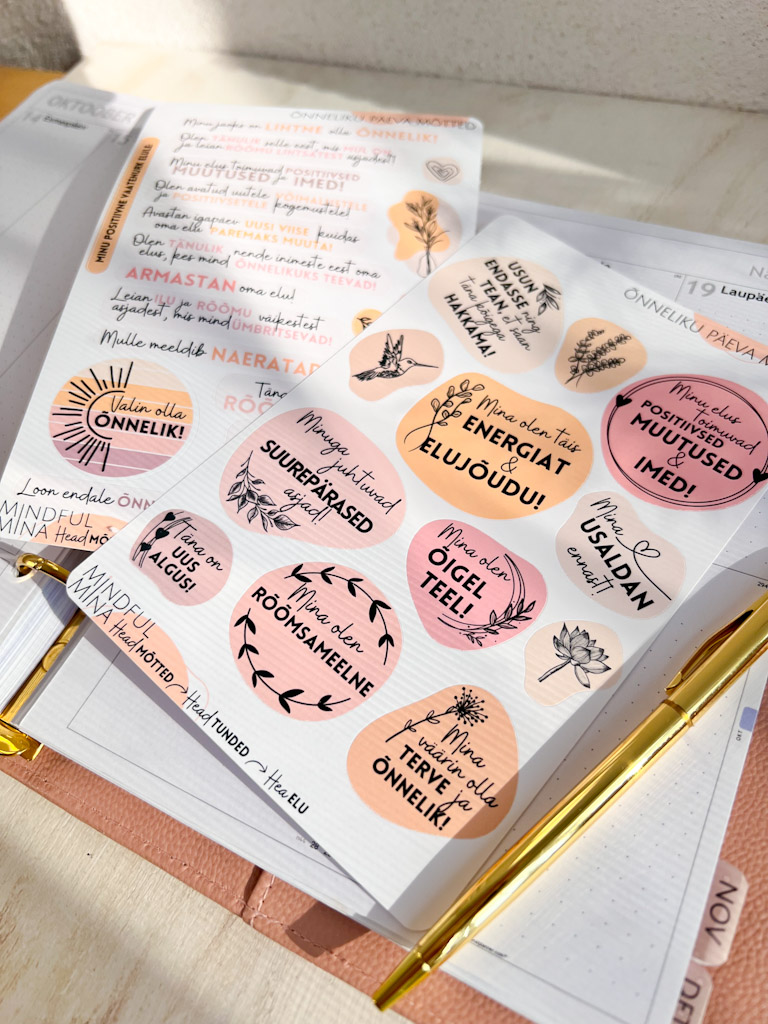 OKTOOBER
14
ÕNNELIKU PÄEVA MÕTTED
MINU POSITIIVNE VAATENURK ELULE
Minu jaoks on LIHTNE olla ÕNNELIK!
Olen TÄNULIK selle eest, mis MUL ON
ja leian RÕÕMU LIHTSATEST asjadest!
Minu elus toimuvad POSITIIVSED
MUUTUSED ja IMED!
Olen avatud uutele VÕIMALUSTELE
ja POSITIIVSETELE kogemustele!
Avastan igapäev UUSI VIISE kuidas
oma elu PAREMAKS MUUTA!
Olen TÄNULIK nende inimeste eest oma
elus, kes mind ÕNNELIKUKS TEEVAD!
ARMASTAN oma elu!
Leian ILU ja RÕÕMU väikestest
asjadest, mis mind ÜMBRITSEVAD!
Mulle meeldib NAERATA
Valin olla
ÕNNELIK!
Loon endale ÕNN
MINDFUL
MINA HeadMÕ
19 Laupäe
ÕNNELIKU PÄEVA M
USUN
ENDASSE ning
TEAN, et saan
täna kõigega
HAKKAMA!
Mina olen täis
ENERGIAT
&
ELUJÕUDU!
Minu elus
toimuvad
POSITIIVSED
MUUTUSED
&
IMED!
Minuga
juhtuvad
SUUREPÄRASED
asjad!
Mina olen
ÕIGEL
TEEL!
Mina
USALDAN
ennast!
Täna on
UUS
ALGUS!
Mina olen
RÕÕMSAMEELNE
Mina
väärin olla
TERVE ja
ÕNNELIK!
MINDFUL
MINA HeadMÕTTED
HeadTUNDED
HeaELU
OKT
NOV
DET